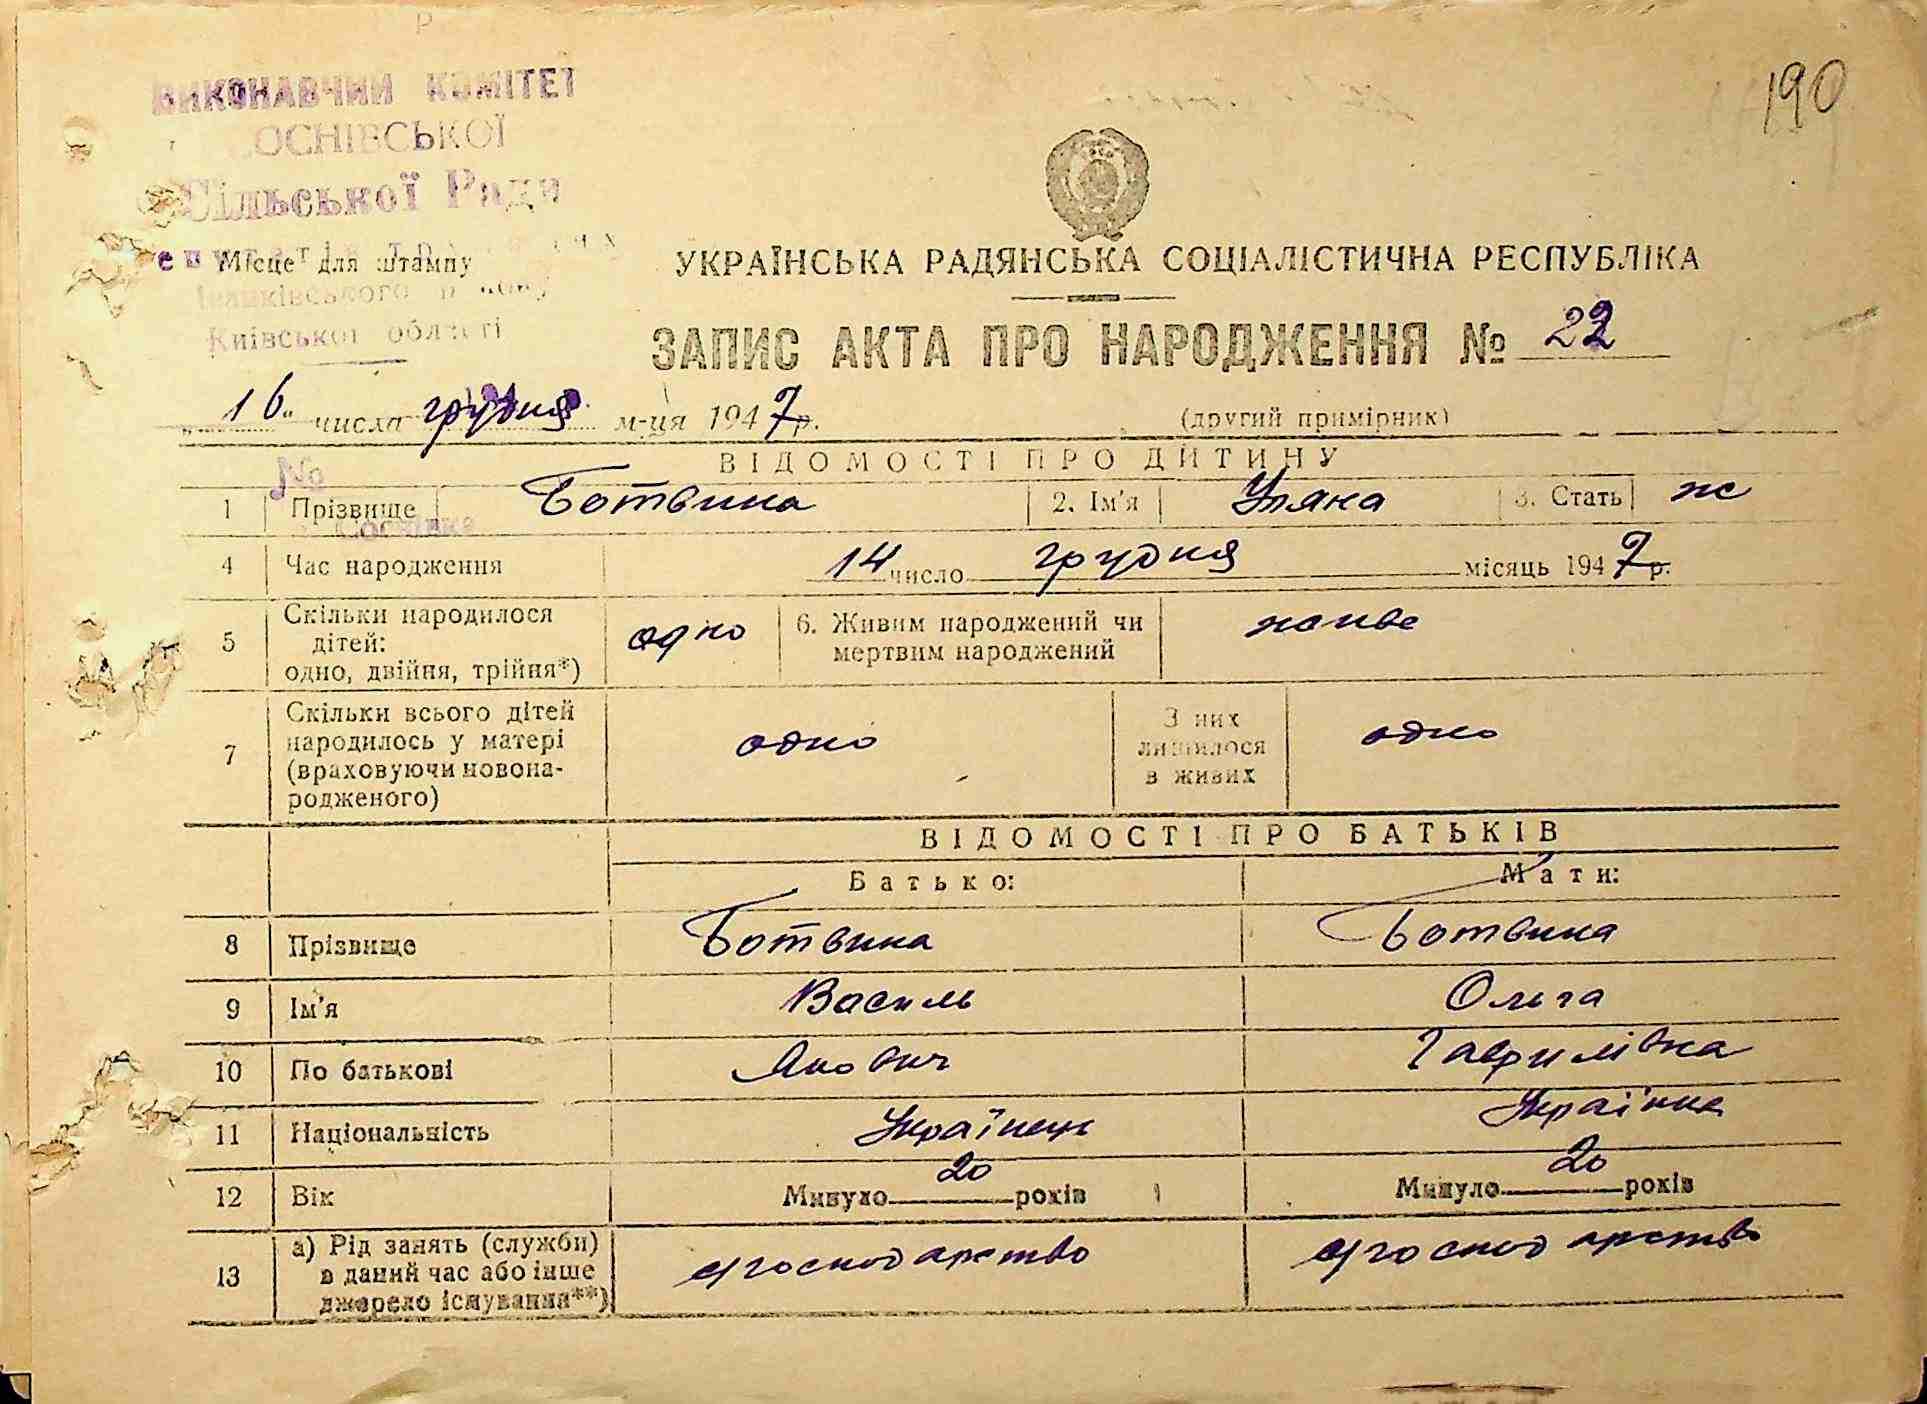 190
ВИКОНАВЧИЙ КОМІТЕТ
ОСНІВСЬКОЇ
Сільської Ради
Місце для штампу
Київської області
УКРАЇНСЬКА РАДЯНСЬКА СОЦІАЛІСТИЧНА РЕСПУБЛІКА
ЗАПИС АКТА ПРО НАРОДЖЕННЯ № 22
„16“ числа грудня м-ця 1947 р. (другий примірник)
№
ВІДОМОСТІ ПРО ДИТИНУ
1 Прізвище Ботвина 2. Ім'я Уляна 3. Стать ж
4 Час народження 14 число грудня місяць 1947 р.
5 Скільки народилося дітей: одно, двійня, трійня*) одно 6. Живим народжений чи мертвим народжений живе
7 Скільки всього дітей народилось у матері (враховуючи новонародженого) одно З них лишилося в живих одно
ВІДОМОСТІ ПРО БАТЬКІВ
Батько: Мати:
8 Прізвище Ботвина Ботвина
9 Ім'я Василь Ольга
10 По батькові Якович Гаврилівна
11 Національність Українець Українка
12 Вік Минуло 20 років Минуло 20 років
13 а) Рід занять (служби) в даний час або інше джерело існування**) с/господарство с/господарство